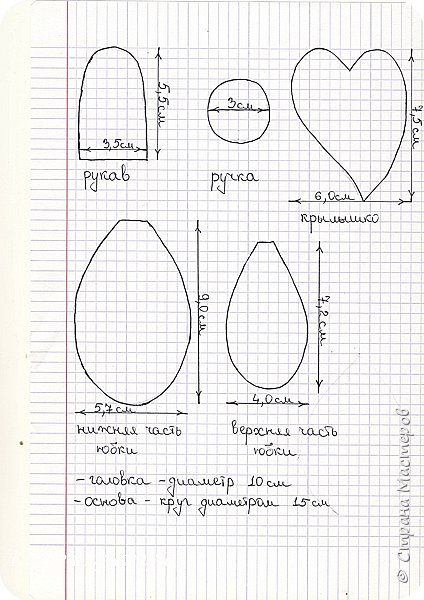 5,5см
3,5см
рукав
3см
ручка
7,5см
6,0см
крылышко
9,0см
5,7см
нижняя часть
юбки
7,2см
4,0см
верхняя часть
юбки.
- головка - диаметр 10см
- основа - круг диаметром 15см
© Страна Мастеров